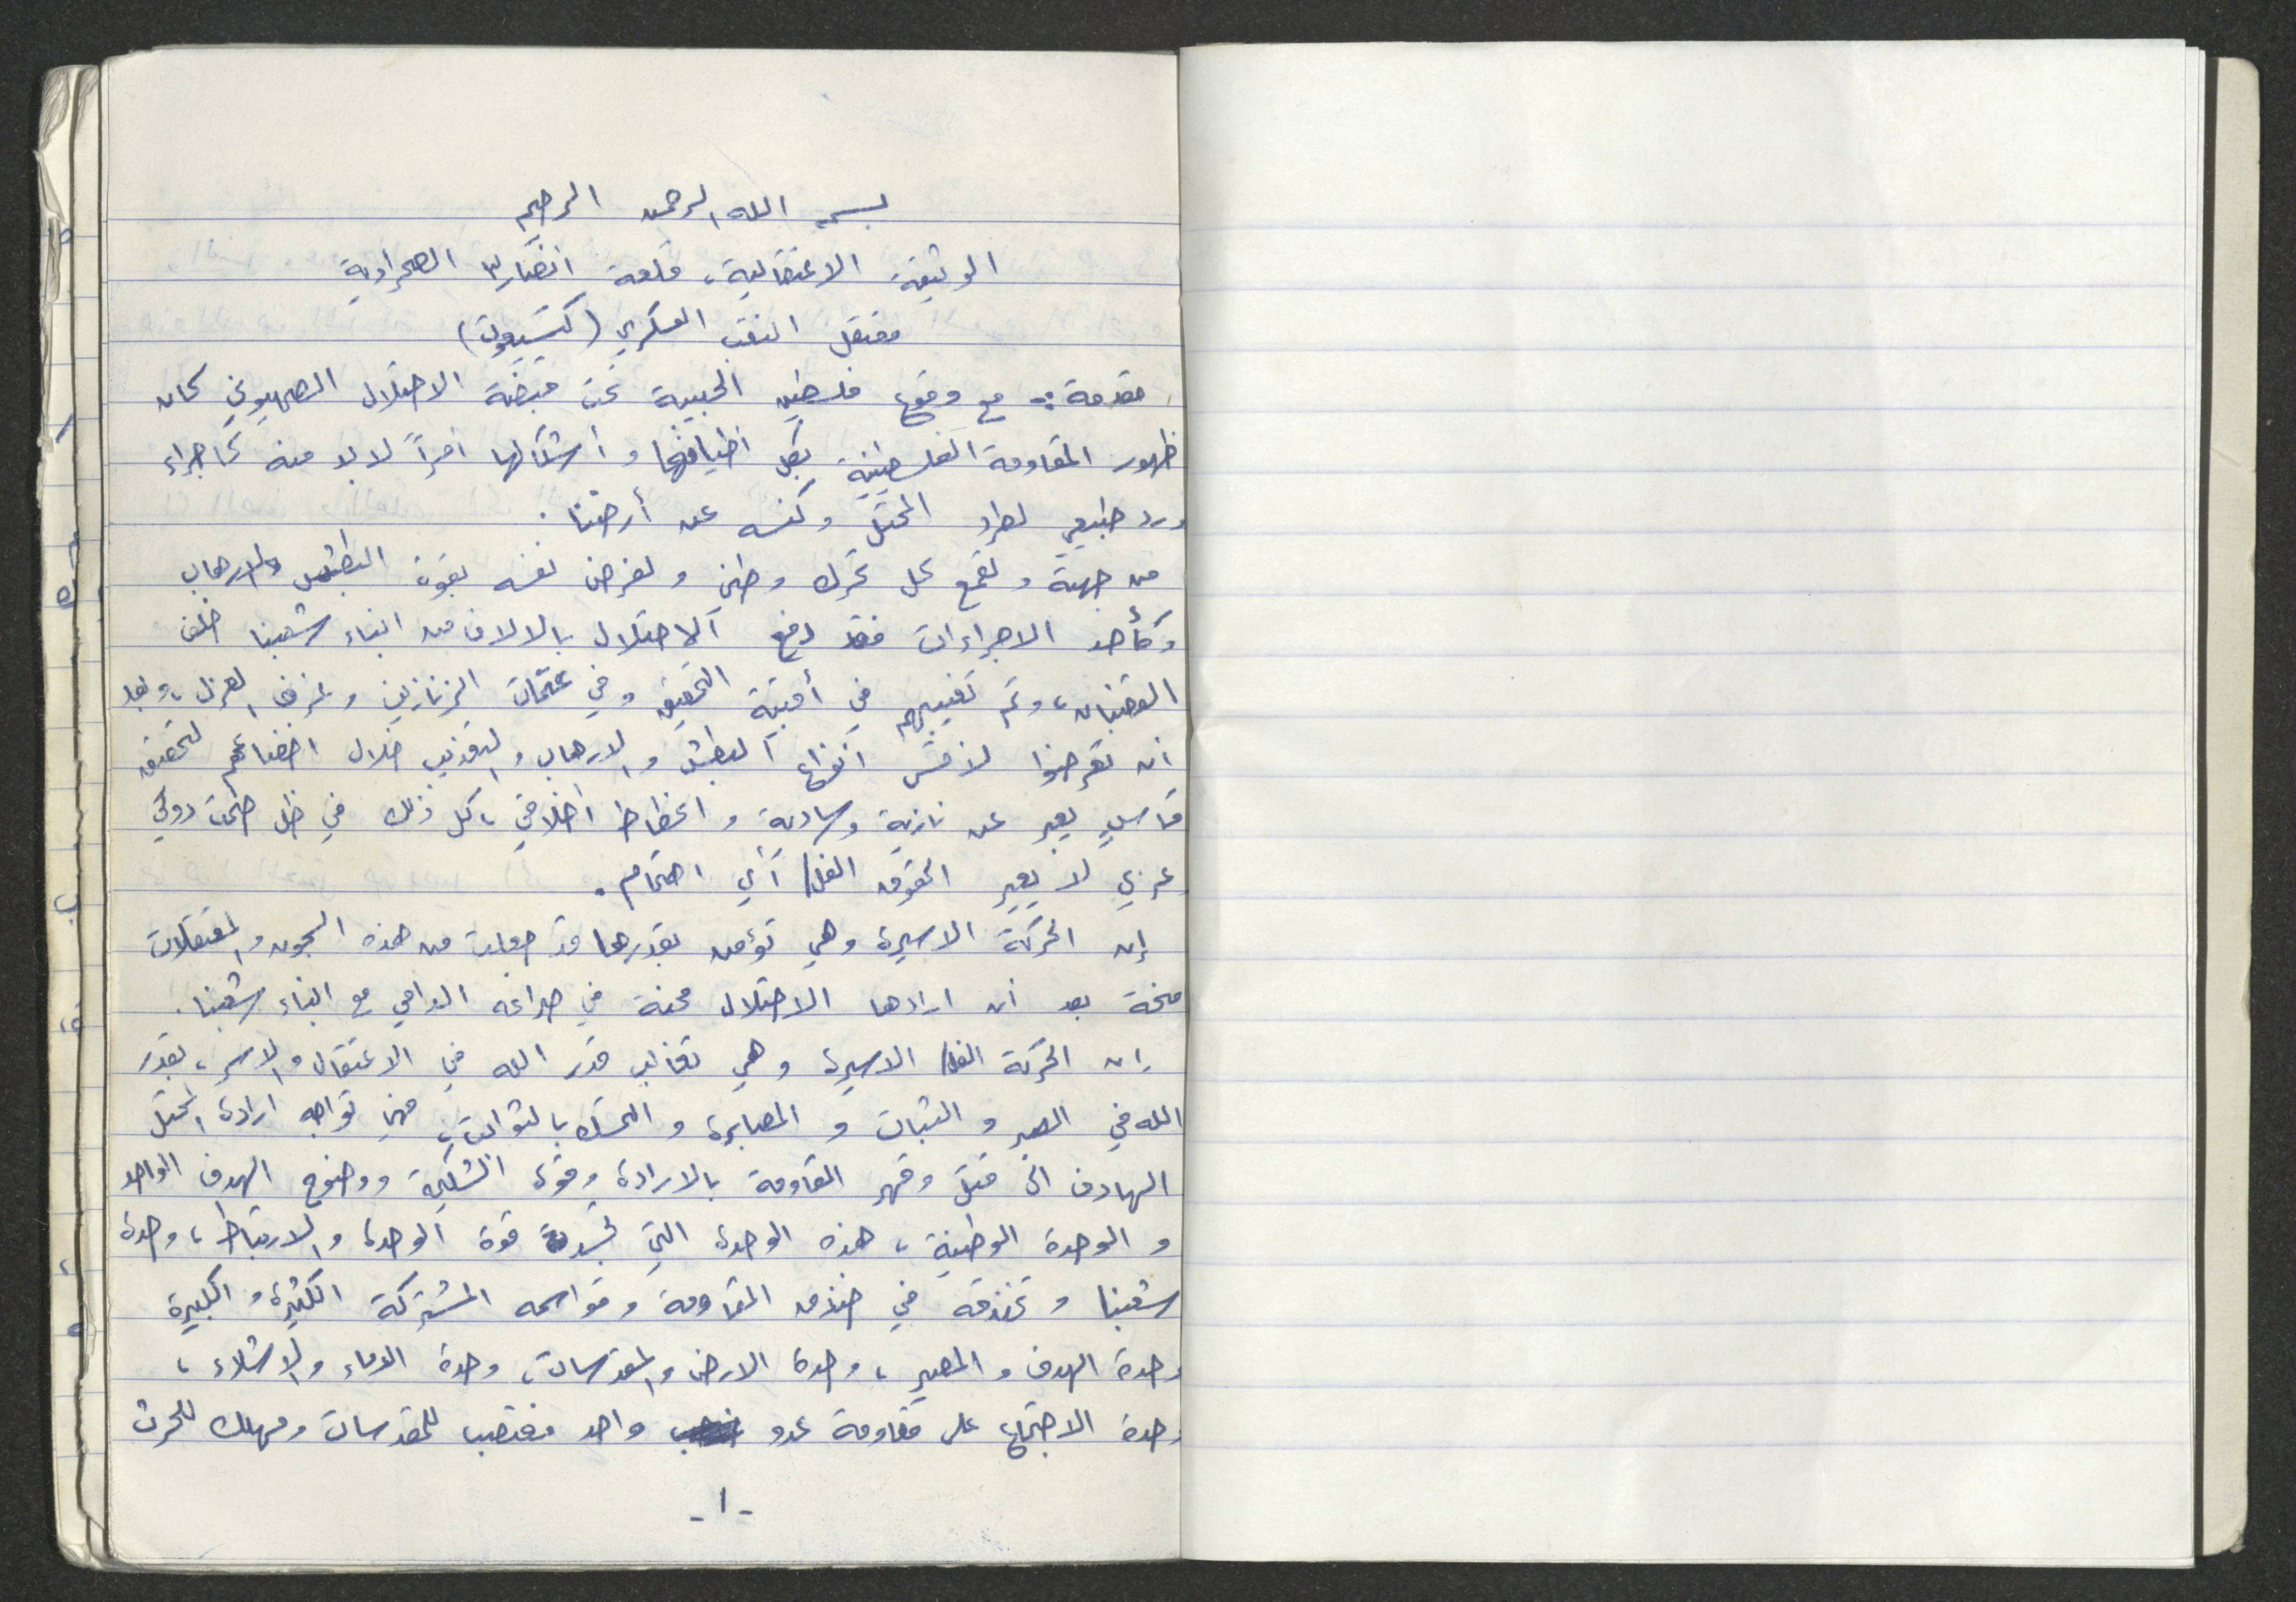 بسم الله الرحمن الرحيم
الوثيقة الاعتقالية، قلعة انصار ٣ الصحراوية
معتقل النقب العسكري (كتسيعوت)
مقدمة :- مع وقوع فلسطين الحبيبة تحت قبضة الاحتلال الصهيوني كان
ظهور المقاومة الفلسطينية بكل اطيافها و أشكالها امراً لابد منه كاجراء
ورد طبيعي لطرد المحتل وكنسه عن أرضنا.
من جهته ولقمع كل تحرك وطني ولفرض نفسه بقوة البطش والارهاب
وكأحد الاجراءات فقد دفع الاحتلال بالالاف من ابناء شعبنا خلف
القضبان، وتم تغييبهم في أقبية التحقيق وفي عتمات الزنازين وغرف العزل، وبعد
ان تعرضوا لاقسى انواع البطش والارهاب والتعذيب خلال اخضاعهم لتحقيق
قاسٍ يعبر عن نازية وسادية و انحطاط اخلاقي، كل ذلك في ظل صمت دولي
عربي لا يعير الحقوق الفل/ أي اهتمام.
إن الحركة الاسيرة وهي تؤمن بقدرها قد جعلت من هذه السجون والمعتقلات
منحة بعد أن ارادها الاحتلال محنة في صراعه الدامي مع ابناء شعبنا.
إن الحركة الفل/ الاسيرة وهي تغالب قدر الله في الاعتقال والاسر، بقدر
الله في الصبر و الثبات و المصابرة و التمسك بالثوابت، فهي تواجه ارادة المحتل
الهادف الى قتل وقهر المقاومة بالارادة وقوة الشكيمة ووضوح الهدف الواحد
و الوحدة الوطنية، هذه الوحدة التي تجسد قوة الوحدة والارتباط، وحدة
شعبنا و تخندقه في خندق المقاومة وقواسمه المشتركة الكثيرة و الكبيرة
وحدة الهدف و المصير، وحدة الارض والمقدسات، وحدة الدماء والاشلاء،
وحدة الاجتماع على مقاومة عدو واحد مغتصب للمقدسات ومهلك للحرث
-١-